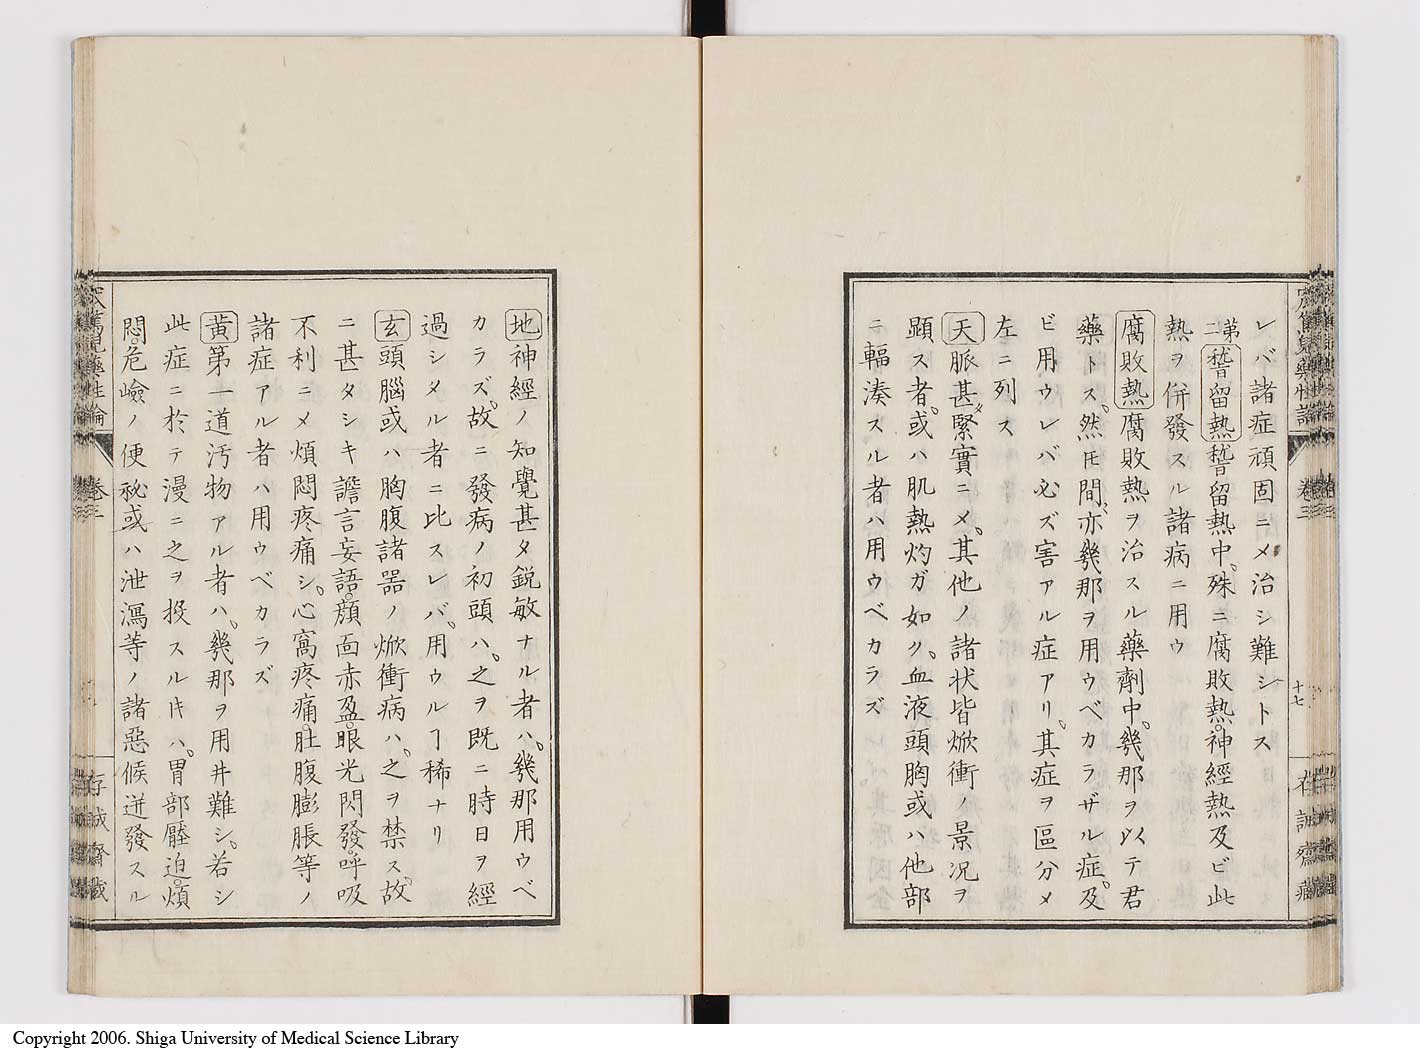 レバ諸症頑固ニメ治シ難シトス
第二稽留熱稽留熱中殊ニ腐敗熱神經熱及ビ此
熱ヲ併發スル諸病ニ用ウ
腐敗熱腐敗熱ヲ治スル藥劑中幾那ヲ以テ君
藥トス然𪜈間亦幾那ヲ用ウベカラザル症及
ビ用ウレバ必ズ害アル症アリ其症ヲ區分メ
左ニ列ス
天脈甚緊實ニメ其他ノ諸状皆焮衝ノ景況ヲ
顕ス者或ハ肌熱灼ガ如ク血液頭胸或ハ他部
ニ輻湊スル者ハ用ウベカラズ
十七
卷三
存誠齋藏
地神經ノ知覺甚タ鋭敏ナル者ハ幾那用ウベ
カラズ故ニ發病ノ初頭ハ之ヲ既ニ時日ヲ經
過シタル者ニ比スレバ用ウルヿ稀ナリ
玄頭腦或ハ胸腹諸器ノ焮衝病ハ之ヲ禁ス故
ニ甚タシキ譫言妄語顔面赤盈眼光閃發呼吸
不利ニメ煩悶疼痛シ心窩疼痛肚腹膨脹等ノ
諸症アル者ハ用ウベカラズ
黄第一道汚物アル者ハ幾那ヲ用井難シ若シ
此症ニ於テ漫ニ之ヲ投スル𪜈ハ胃部壓迫煩
悶危嶮ノ便祕或ハ泄瀉等ノ諸惡候迸發スル
卷三
存誠齋藏
Copyright 2006. Shiga University of Medical Science Library